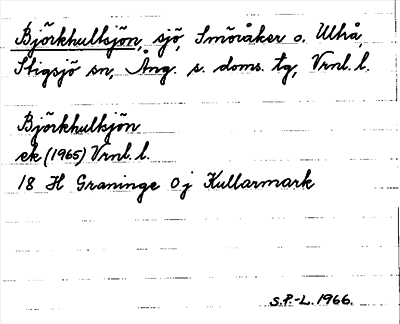 Björkhultsjön, sjö, Smöråker o. Ultrå,
Stigsjö sn, Ång. s. doms. tg, Vrnl. l.
Björkhultsjön
ek (1965) Vrnl. l.
18 H Graninge 0j Kullarmark
S.P.-L. 1966.